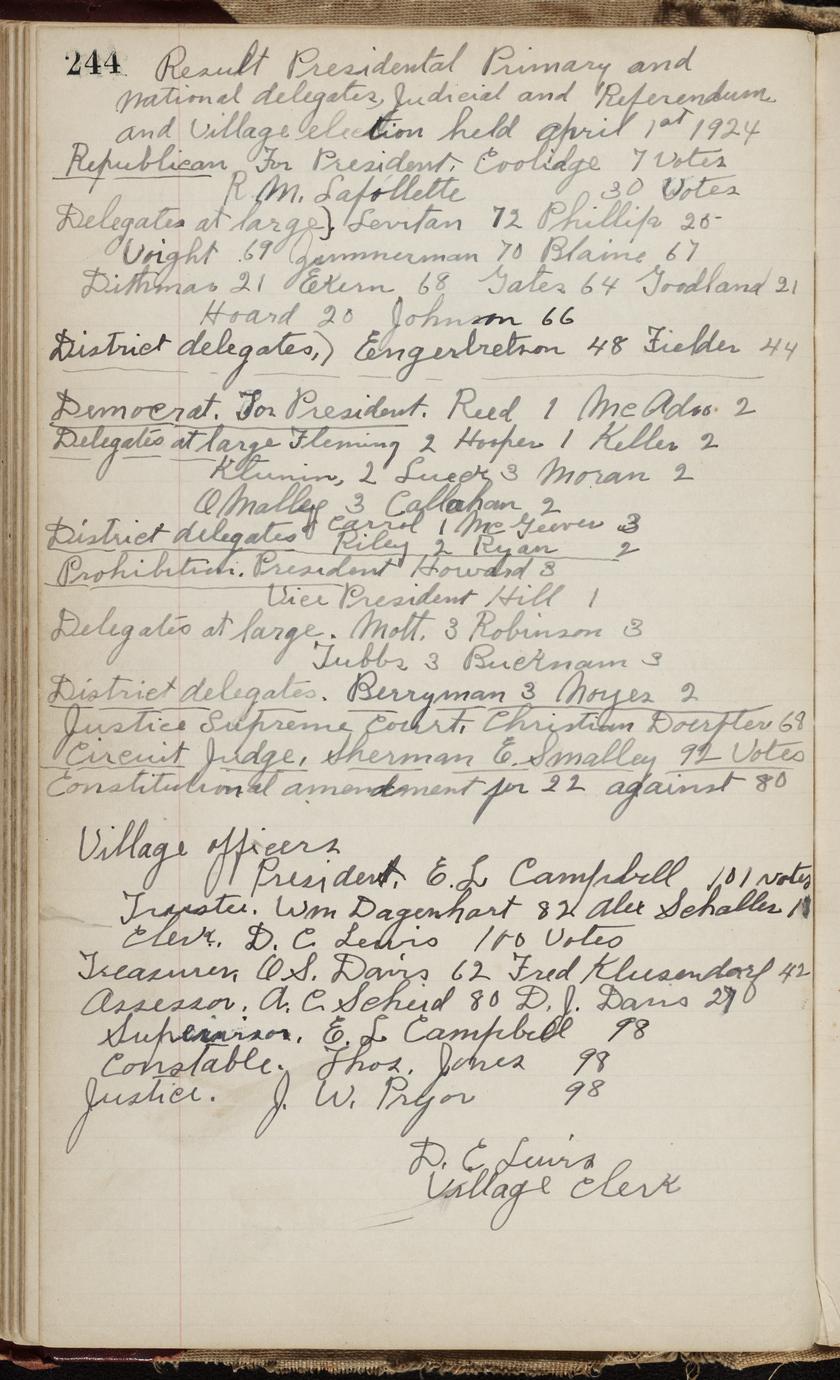 244 Result Presidental Primary and
national delegates, Judicial and Referendum
and Village election held april 1st 1924
Republican For President. Coolidge 7 Votes
R. M. Lafollette 30 Votes
Delegates at large}. Levitan 72 Phillip 25
Voight .69 Zimmerman 70 Blaine 67
Dithmar 21 Ekern 68 Gates 64 Goodland 21
Hoard 20 Johnson 66
District delegates,) Engerbretson 48 Fielder 44
Democrat. For President. Reed 1 McAdoo. 2
Delegates at large Fleming 2 Hooper 1 Keller 2
2 Lueck 3 Moran 2
O Malley 3 Callahan 2
District delegates Carrol 1 McGeever 3
Riley 2 Ryan 2
Prohibition. President Howard 3
Vice President Hill 1
Delegates at large. Mott. 3 Robinson 3
Tubbs 3 Bucknam 3
District delegates. Berryman 3 Noyes 2
Justice Supreme Court, Christian Doerfler 68
Circuit Judge, Sherman E. Smalley 92 Votes
Constitutional amendment for 22 against 80
Village officers
President, E. L Campbell 101 votes
Trustee. Wm Dagenhart 82 Alex Schaller
Clerk. D. E. Lewis 100 Votes
Treasurer, O. S. Davis 62 Fred Klusendorf 42
Assessor. A. C. Scheid 80 D. J. Davis
Supervisor. E. L Campbell 98
Constable. Thos. Jones 98
Justice. J. W. Pryor 98
D. E Lewis
Village Clerk